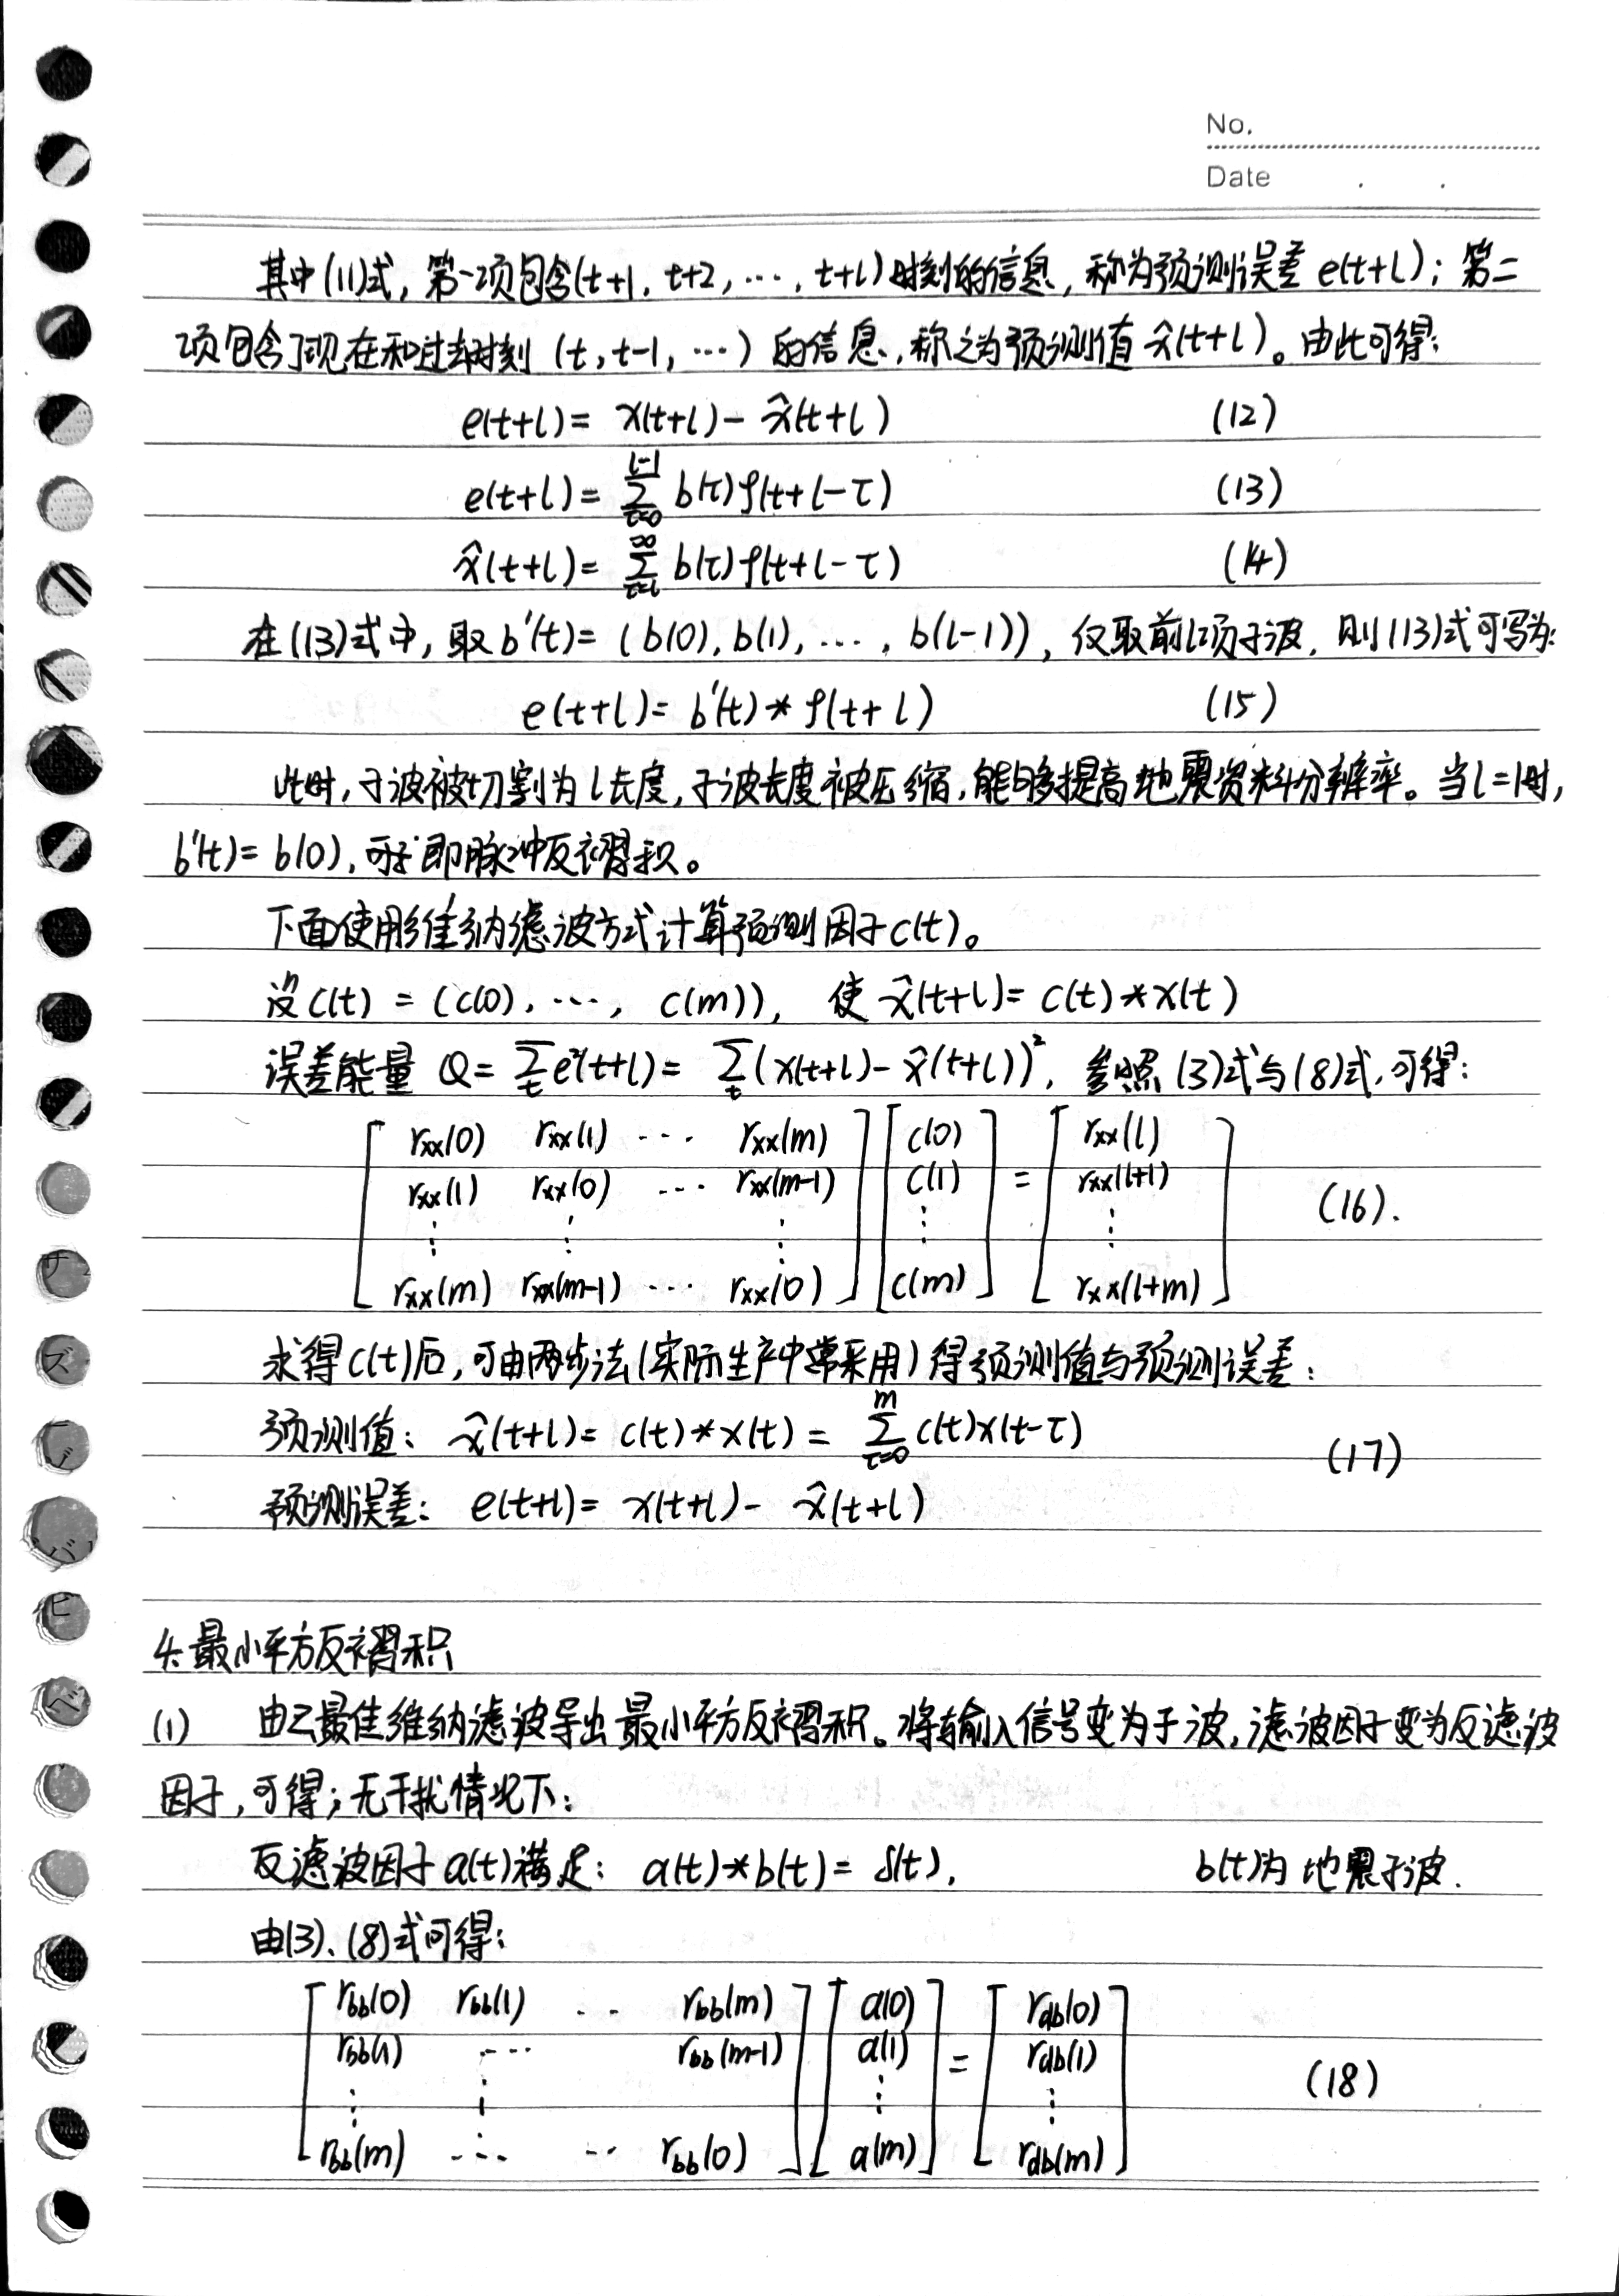 No.
Date . .
其中(11)式，第一项包含(t+1, t+2, ⋯, t+l)时刻的信息，称为预测误差 e(t+l)；第二
项包含了现在和过去时刻 (t, t-1, ⋯) 的信息，称之为预测值 x̂(t+l)。由此可得：
e(t+l) = x(t+l) - x̂(t+l) (12)
e(t+l) = ∑_{τ=0}^{l-1} b(τ)ρ(t+l-τ) (13)
x̂(t+l) = ∑_{τ=l}^{∞} b(τ)ρ(t+l-τ) (14)
在(13)式中，取 b'(t) = (b(0), b(1), ⋯, b(l-1))，仅取前l项子波，则(13)式可写为：
e(t+l) = b'(t) * ρ(t+l) (15)
此时，子波被切割为l长度，子波长度被压缩，能够提高地震资料分辨率。当l=1时，
b'(t) = b(0)，即脉冲反褶积。
下面使用维纳滤波方式计算预测因子c(t)。
设 c(t) = (c(0), ⋯, c(m))，使 x̂(t+l) = c(t) * x(t)
误差能量 Q = ∑_t e²(t+l) = ∑_t (x(t+l) - x̂(t+l))²，参照(3)式与(8)式，可得：
[ rxx(0) rxx(1) ⋯ rxx(m) ] [ c(0) ] [ rxx(l) ]
rxx(1) rxx(0) ⋯ rxx(m-1) c(1) = rxx(l+1)
⋮ ⋮ ⋮ ⋮ ⋮ (16).
rxx(m) rxx(m-1) ⋯ rxx(0) c(m) rxx(l+m)
求得c(t)后，可由两步法(实际生产中常采用)得预测值与预测误差：
预测值： x̂(t+l) = c(t) * x(t) = ∑_{τ=0}^{m} c(t)x(t-τ)
(17)
预测误差： e(t+l) = x(t+l) - x̂(t+l)
4. 最小平方反褶积
(1) 由2最佳维纳滤波导出最小平方反褶积。将输入信号变为子波，滤波因子变为反滤波
因子，可得；无干扰情况下：
反滤波因子a(t)满足： a(t) * b(t) = δ(t). b(t)为地震子波.
由(3)、(8)式可得：
[ rbb(0) rbb(1) ⋯ rbb(m) ] [ a(0) ] [ rdb(0) ]
rbb(1) ⋯ rbb(m-1) a(1) = rdb(1)
⋮ ⋮ ⋮ ⋮ (18)
rbb(m) ⋯ ⋯ rbb(0) a(m) rdb(m)